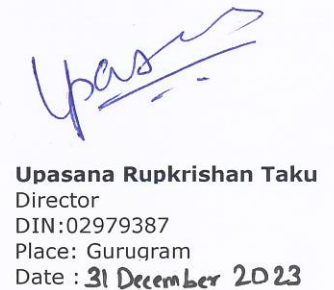 Upasana
Upasana Rupkrishan Taku
Director
DIN:02979387
Place: Gurugram
Date : 31 December 2023